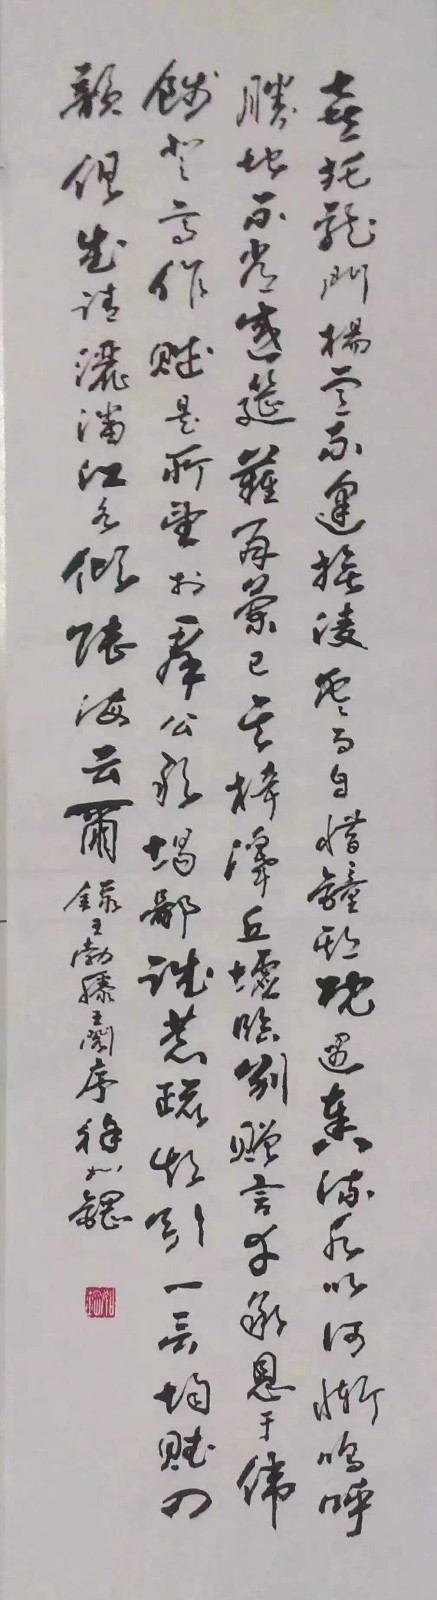 喜托龍門楊意不逢撫凌雲而自惜鐘期既遇奏流水以何慚嗚呼
勝地不常盛筵難再蘭已矣梓澤丘墟臨別贈言幸承恩于偉
餞登高作賦是所望於羣公敢竭鄙誠恭疏短引一言均賦四
韻俱成請灑潘江各傾陸海云爾 錄王勃滕王閣序 徐